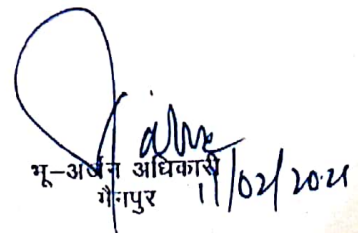 भू-अर्जन अधिकारी
मैनपुर 11/02/2021